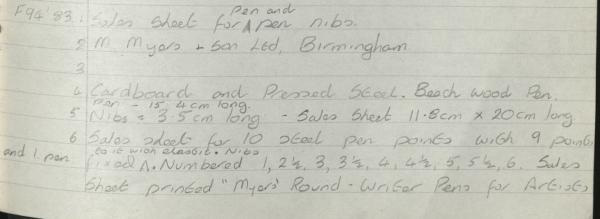 F94'83. 1 Sales sheet for ∧ pen and pen nibs.
2 M. Myers + Son Ltd, Birmingham
3
4 Cardboard and Pressed Steel. Beech wood Pen.
pen - 15.4cm long.
5 Nibs = 3.5cm long - Sales Sheet 11.8cm x 20cm long
6 Sales sheet for 10 steel pen points with 9 points
and 1 pen
to it with elastic. Nibs
fixed ∧. Numbered 1, 2½, 3, 3½, 4, 4½, 5, 5½, 6. Sales
Sheet printed "Myers' Round-Writer Pens for Artists